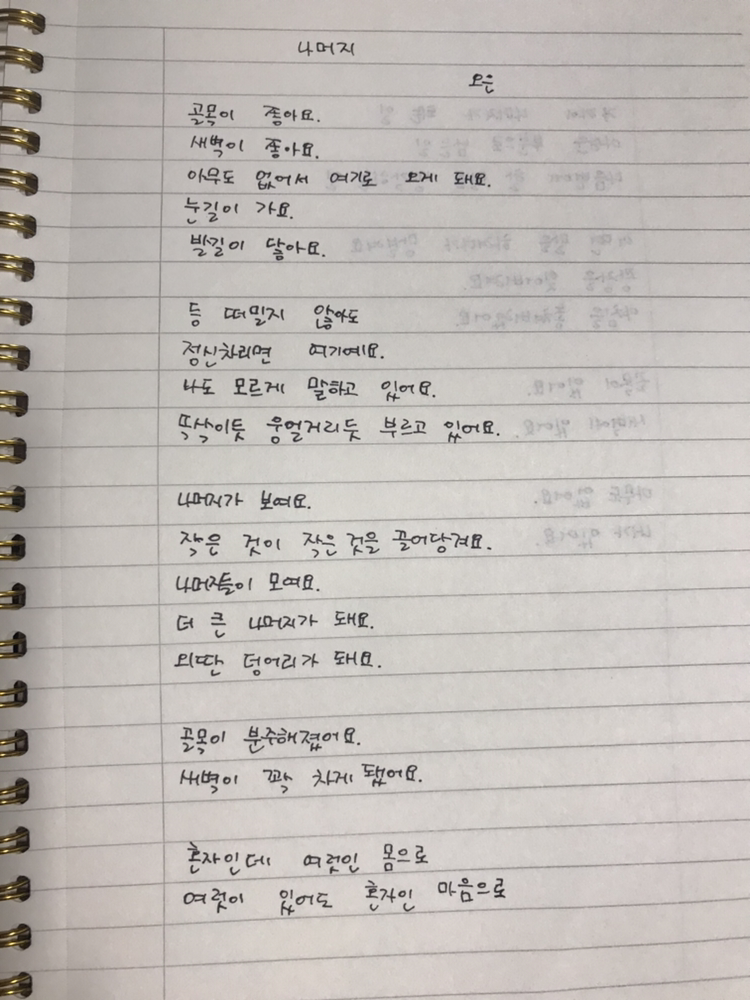 나머지
오은
골목이 좋아요.
새벽이 좋아요.
아무도 없어서 여기로 오게 돼요.
눈길이 가요.
발길이 닿아요.
등 떠밀지 않아도
정신차리면 여기예요.
나도 모르게 말하고 있어요.
똑삭이듯 웅얼거리듯 부르고 있어요.
나머지가 보여요.
작은 것이 작은 것을 끌어당겨요.
나머지들이 모여요.
더 큰 나머지가 돼요.
외딴 덩어리가 돼요.
골목이 분주해졌어요.
새벽이 꽉 차게 됐어요.
혼자인데 여럿인 몸으로
여럿이 있어도 혼자인 마음으로